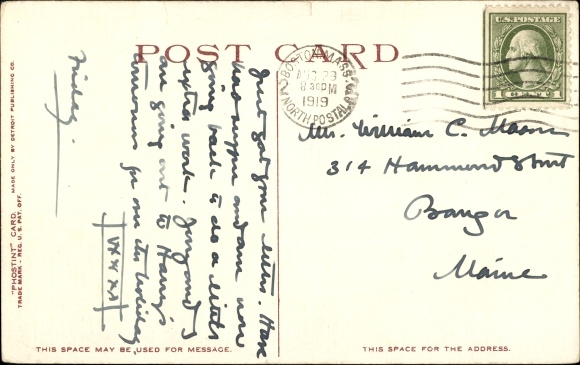 POST CARD
BOSTON, MASS.
AUG 29
8 30 PM
1919
NORTH POSTAL
U.S. POSTAGE
1 CENT 1
Mr. William C. Mason
314 Hammond Street
Bangor
Maine
Friday.
Just got your letter. Have
had supper and am now
going back to do a little
extra work. and I
are going out to Harry's
for over the holiday
XXXXX
"PHOSTINT" CARD. MADE ONLY BY DETROIT PUBLISHING CO.
TRADE MARK - REG. U.S. PAT. OFF.
THIS SPACE MAY BE USED FOR MESSAGE.
THIS SPACE FOR THE ADDRESS.